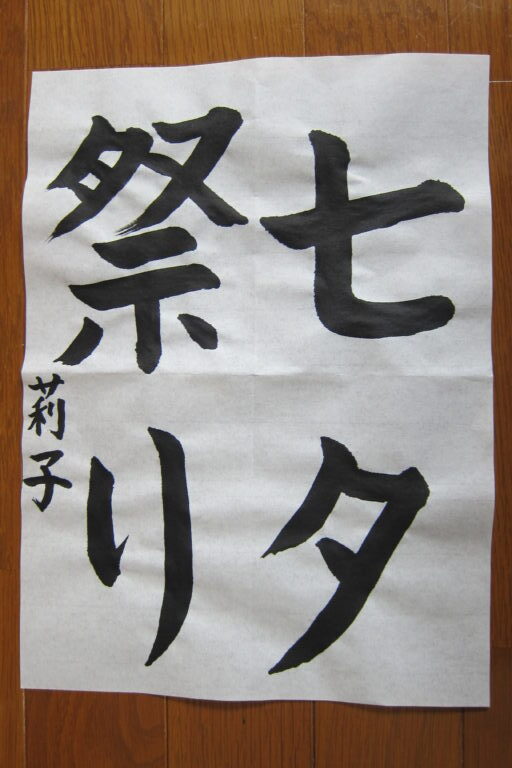 七夕
祭り
莉子